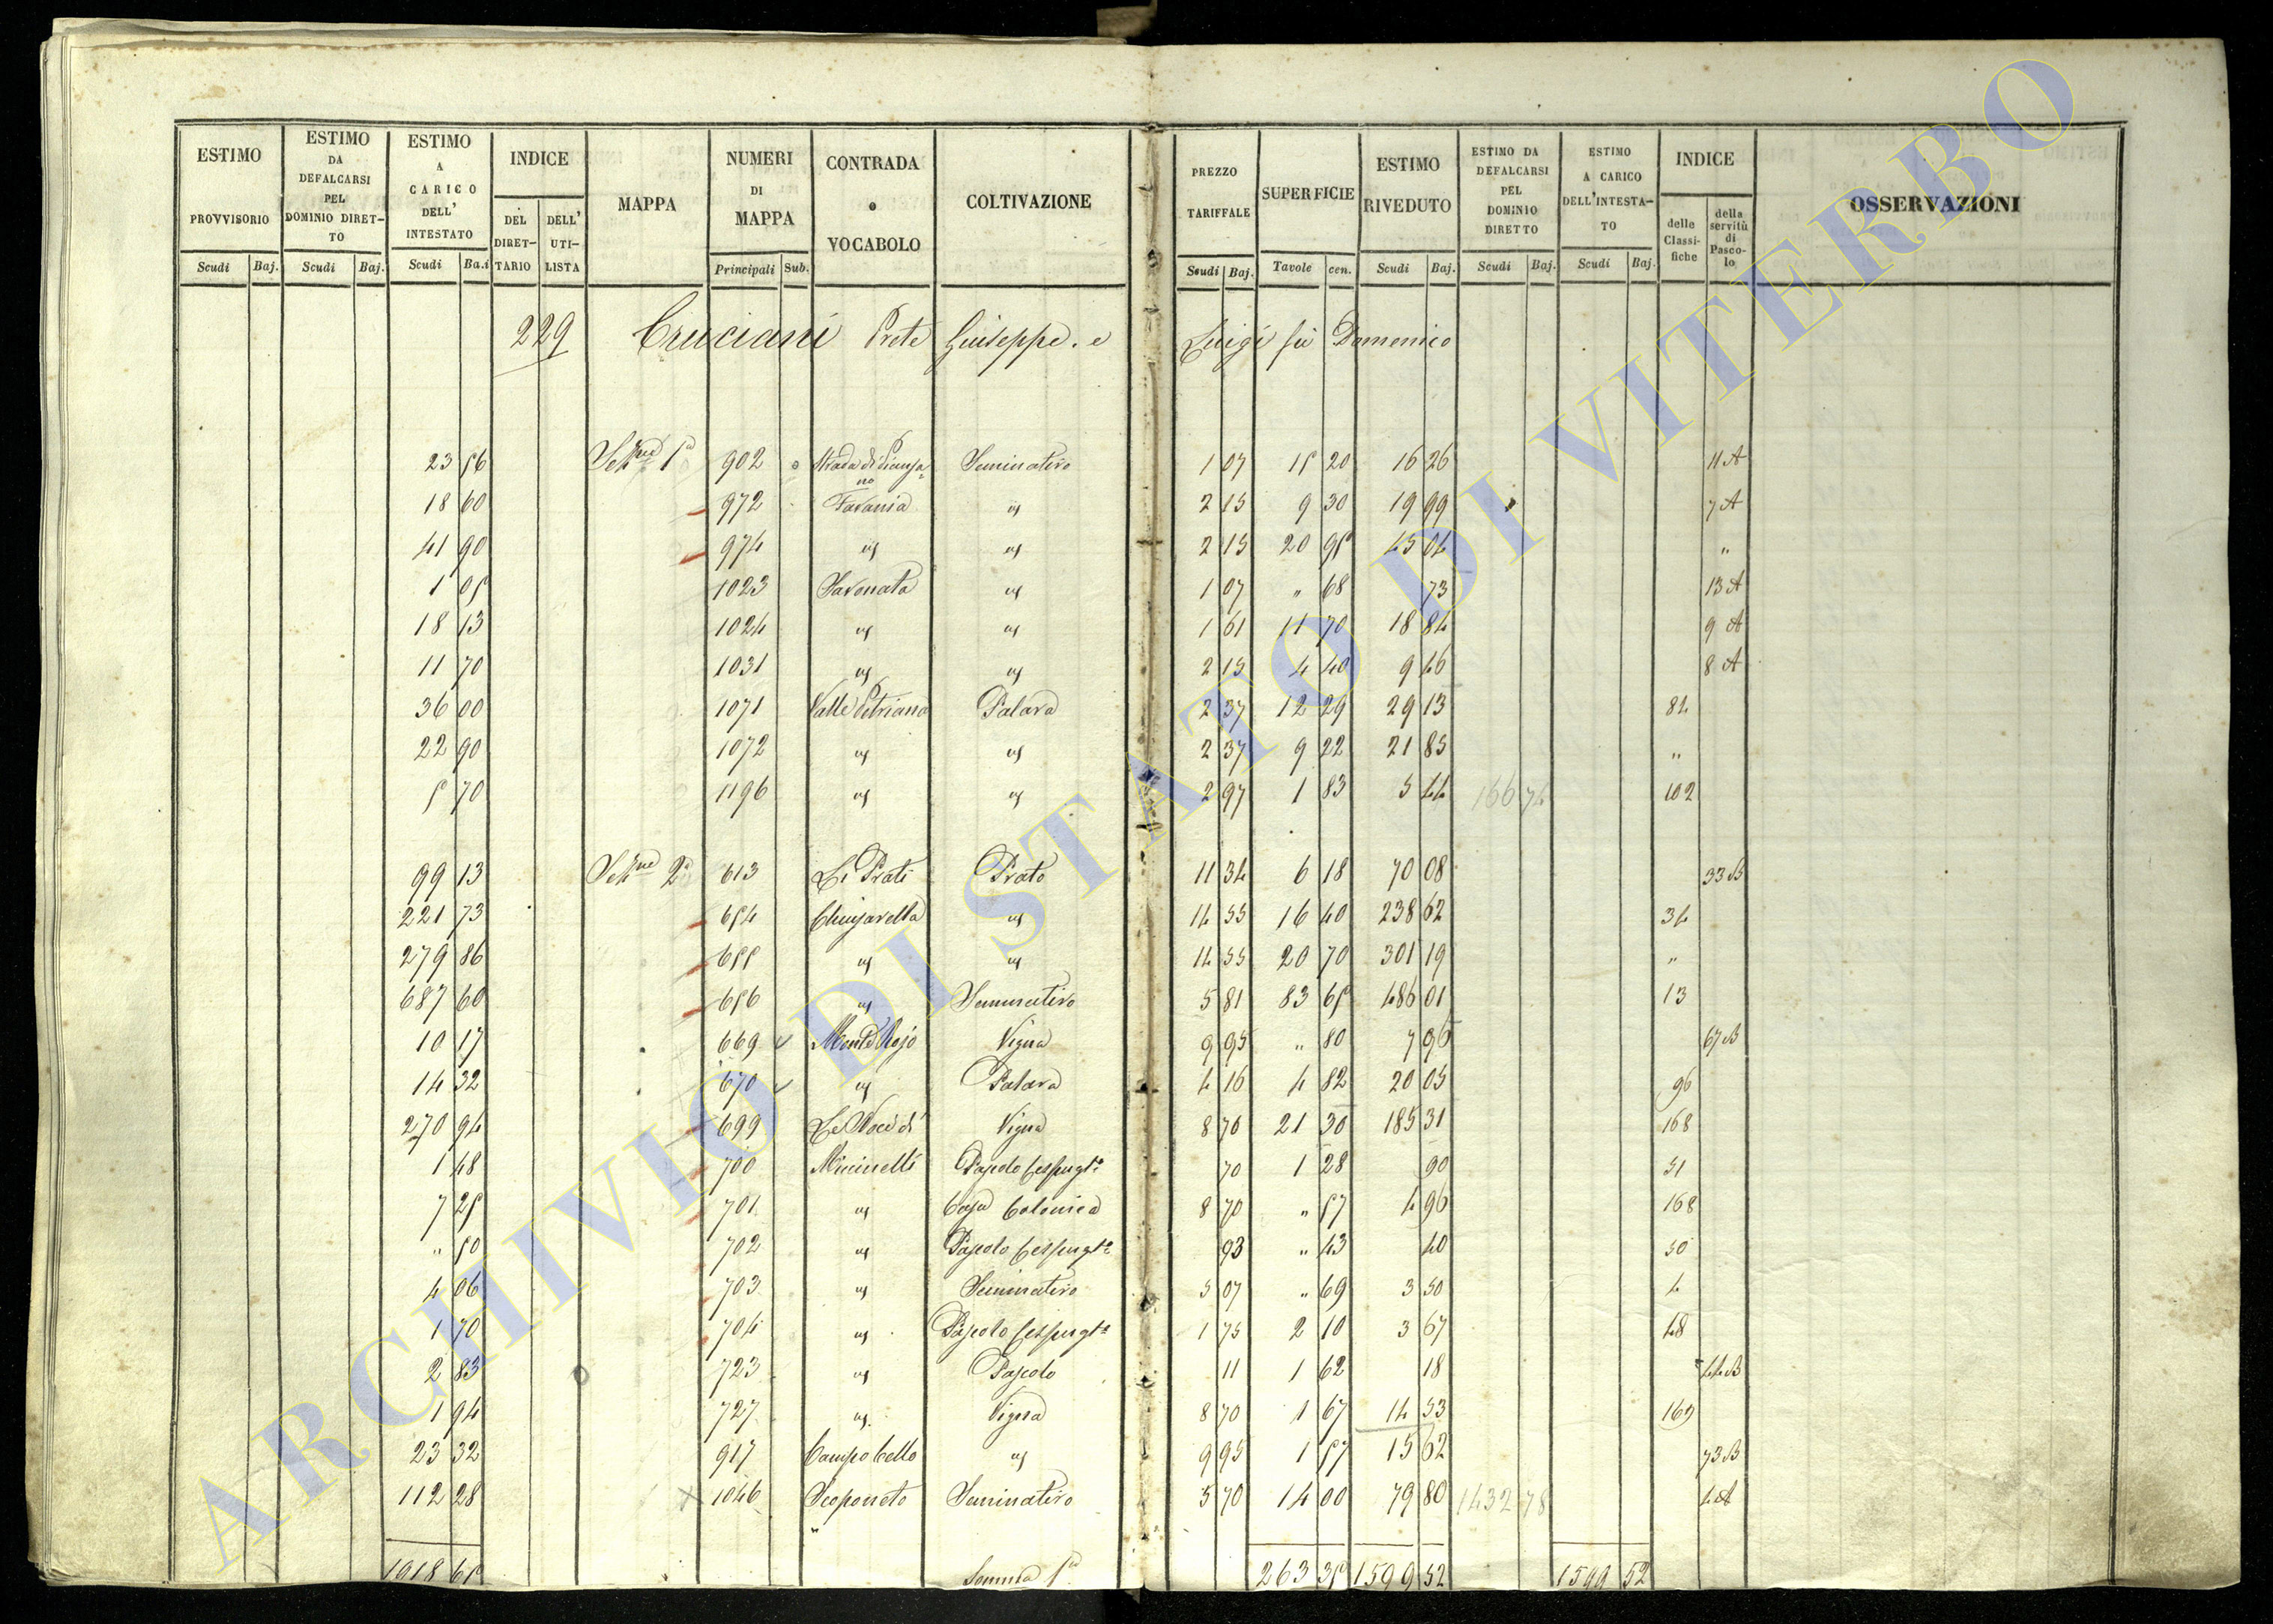 ESTIMO PROVVISORIO Scudi Baj.
ESTIMO DA DEFALCARSI PEL DOMINIO DIRET- TO Scudi Baj.
ESTIMO A CARICO DELL' INTESTATO Scudi Ba.i
INDICE DEL DIRET- TARIO DELL' UTI- LISTA
MAPPA
NUMERI DI MAPPA Principali Sub.
CONTRADA o VOCABOLO
COLTIVAZIONE
PREZZO TARIFFALE Scudi Baj.
SUPERFICIE Tavole cen.
ESTIMO RIVEDUTO Scudi Baj.
ESTIMO DA DEFALCARSI PEL DOMINIO DIRETTO Scudi Baj.
ESTIMO A CARICO DELL'INTESTA- TO Scudi Baj.
INDICE delle Classi- fiche della servitù di Pasco- lo
OSSERVAZIONI
229 Cruciani Prete Giuseppe. e Luigi fù Domenico
23 56 Sezne 1a 902 Strada di Piansa= no Seminativo 1 07 15 20 16 26 11 A
18 60 972 Tavania " 2 15 9 30 19 99 7 A
41 90 974 " " 2 15 20 95 45 04 "
1 05 1023 Savonata " 1 07 " 68 73 13 A
18 13 1024 " " 1 61 11 70 18 84 9 A
11 70 1031 " " 2 15 4 40 9 46 8 A
36 00 1071 Valle Petriana Palara 2 37 12 29 29 13 84
22 90 1072 " " 2 37 9 22 21 85 "
5 70 1196 " " 2 97 1 83 5 44 166 74 102
99 13 Sezne 2a 613 Li Prati Prato 11 34 6 18 70 08 33 B
221 73 654 Chiusarella " 14 55 16 40 238 62 34
279 86 655 " " 14 55 20 70 301 19 "
687 60 656 " Seminativo 5 81 83 65 486 01 13
10 17 669 Monte Rojo Vigna 9 95 " 80 7 96 67 B
14 32 670 " Palara 4 16 4 82 20 05 96
270 94 699 Le Noce di Vigna 8 70 21 30 185 31 168
1 48 700 Micinelli Pascolo Cespugto 70 1 28 90 51
7 25 701 " Casa Colonica 8 70 " 57 4 96 168
" 50 702 " Pascolo Cespugto 93 " 43 40 50
4 06 703 " Seminativo 5 07 " 69 3 50 4
1 70 704 " Pascolo Cespugto 1 75 2 10 3 67 48
2 83 723 " Pascolo 11 1 62 18 44 B
1 94 727 " Vigna 8 70 1 67 14 53 169
23 32 917 Campo Cello " 9 95 1 57 15 62 73 B
112 28 1046 Scoponeto Seminativo 5 70 14 00 79 80 1432 78 4 A
1918 65 Somma 1a 263 35 1599 52 1599 52
ARCHIVIO DI STATO DI VITERBO